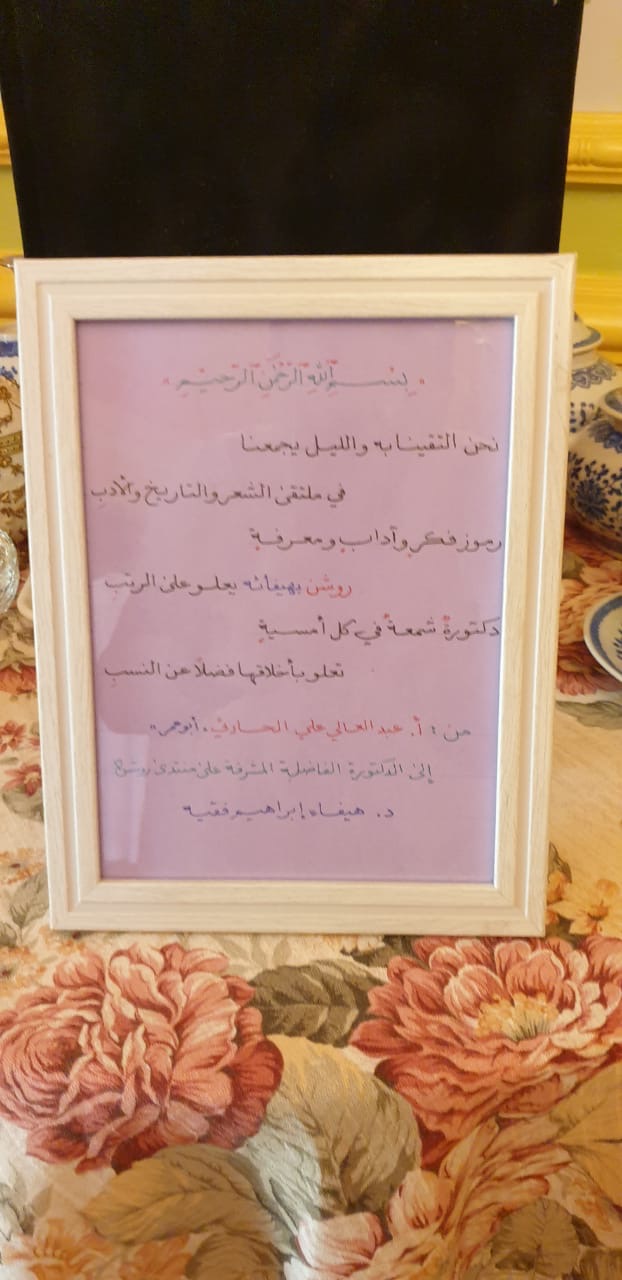 « بِسْــمِ اللهِ الرَّحْمٰنِ الرَّحِيْمِ »
نحن التقينا به والليل يجمعنا
في ملتقى الشعر والتاريخ والأدبِ
رموز فكرٍ وآدابٍ ومعرفةٍ
روشن بهيفائه يعلو على الرتبِ
دكتورةٌ شمعةٌ في كل أمسيةٍ
تعلو بأخلاقها فضلاً عن النسبِ
من : أ. عبد العالي علي الحارثي «أبوعمر»
إلى الدكتورة الفاضلة المشرفة على منتدى روشن
د. هيفاء إبراهيم فقيه